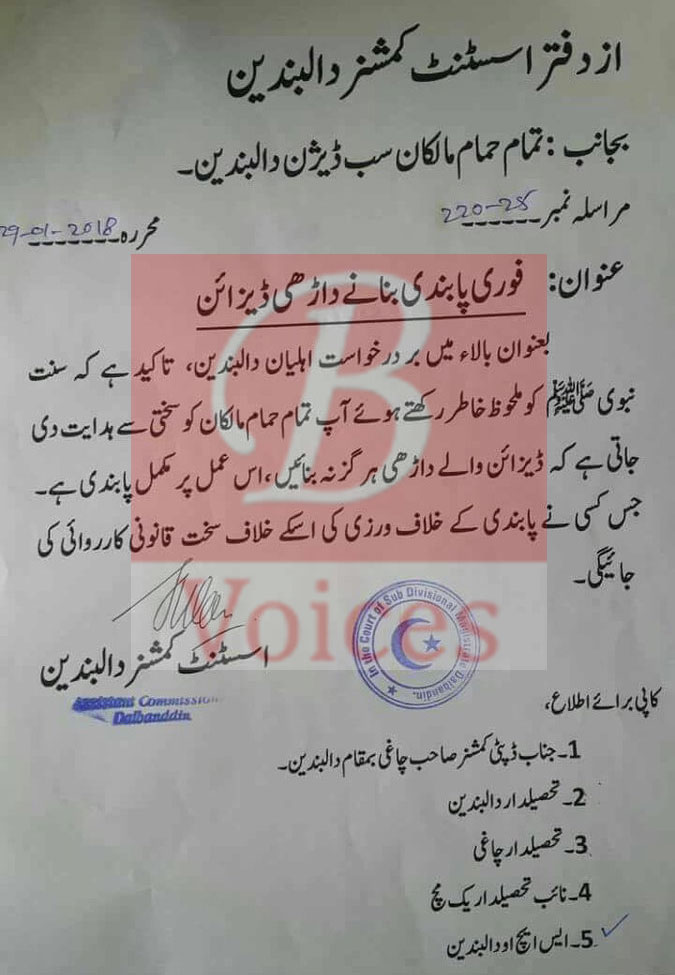 از دفتر اسسٹنٹ کمشنر دالبندین
بجانب : تمام حمام مالکان سب ڈیژن دالبندین۔
مراسلہ نمبر 220-25
محررہ 29-01-2018
عنوان: فوری پابندی بنانے داڑھی ڈیزائن
بعنوان بالاء میں بر درخواست اہلیان دالبندین، تاکید ہے کہ سنت
نبوی ﷺ کو ملحوظ خاطر رکھتے ہوئے آپ تمام حمام مالکان کو سختی سے ہدایت دی
جاتی ہے کہ ڈیزائن والے داڑھی ہرگز نہ بنائیں، اس عمل پر مکمل پابندی ہے۔
جس کسی نے پابندی کے خلاف ورزی کی اسکے خلاف سخت قانونی کارروائی کی
جائیگی۔
B
Voices
اسسٹنٹ کمشنر دالبندین
Assistant Commission
Dalbanddin
In the Court of Sub Divisional Magistrate Dalbandin.
کاپی برائے اطلاع،
1۔ جناب ڈپٹی کمشنر صاحب چاغی بمقام دالبندین۔
2۔ تحصیلدار دالبندین
3۔ تحصیلدار چاغی
4۔ نائب تحصیلدار یک مچ
5۔ ایس ایچ او دالبندین